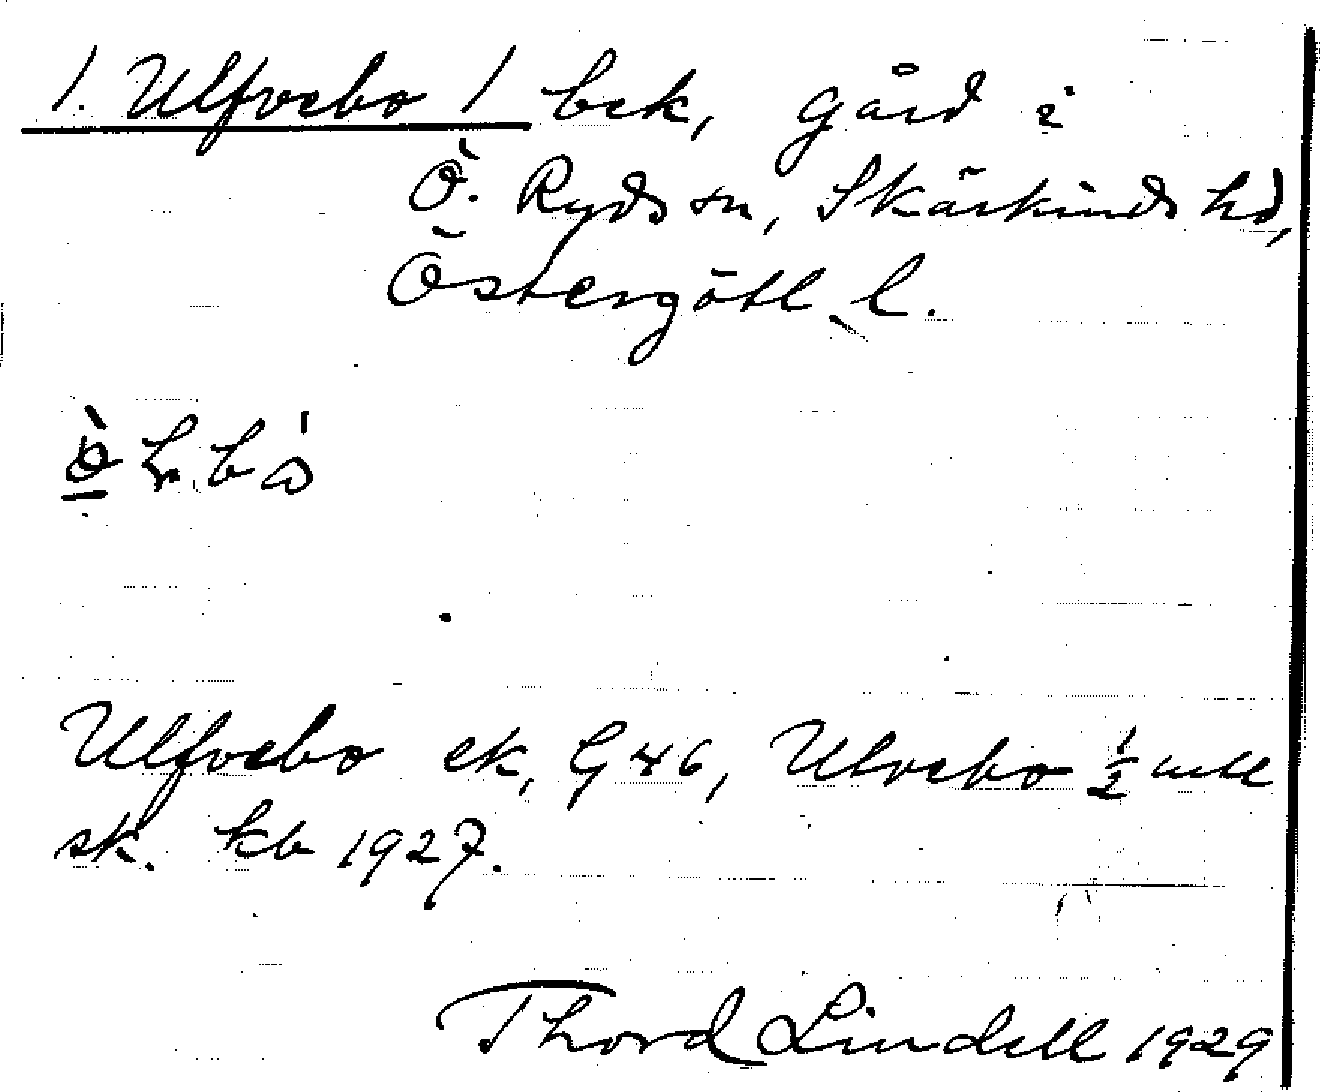 1. Ulfvebo / bek, gård i
Ö. Ryds sn, Skärkinds hd,
Östergötl. l.
Ulfvebo ek, G 46, Ulvebo ½ mtl
sk. kb 1927.
Thord Lindell 1929